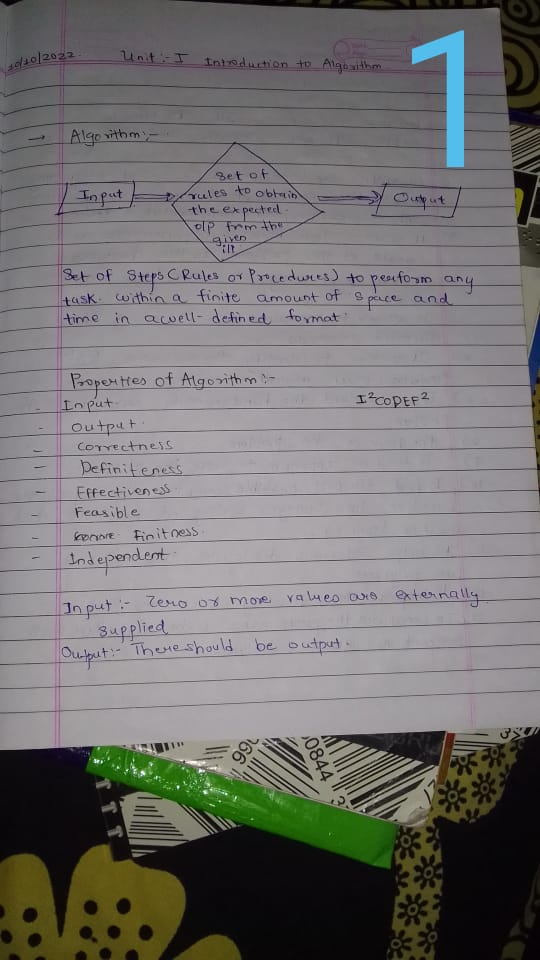 1
20/10/2022. Unit :- I Introduction to Algorithm
→ Algorithm :-
Input
Set of
rules to obtain
the expected
o/p from the
given
i/p
Output
Set of Steps (Rules or Procedures) to peuform any
task. within a finite amount of space and
time in a well-defined format.
Properties of Algorithm :-
- Input.
I²CODEF²
- Output.
- Correctness
- Definiteness
- Effectiveness
- Feasible
- finitness.
- Independent.
Input :- Zero or more values are externally
supplied
Output :- There should be output.
990
0844